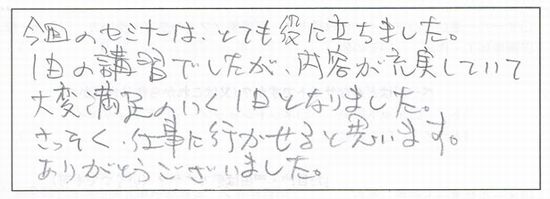 今回のセミナーは、とても役に立ちました。
1日の講習でしたが、内容が充実していて
大変満足のいく1日となりました。
さっそく、仕事に行かせると思います。
ありがとうございました。